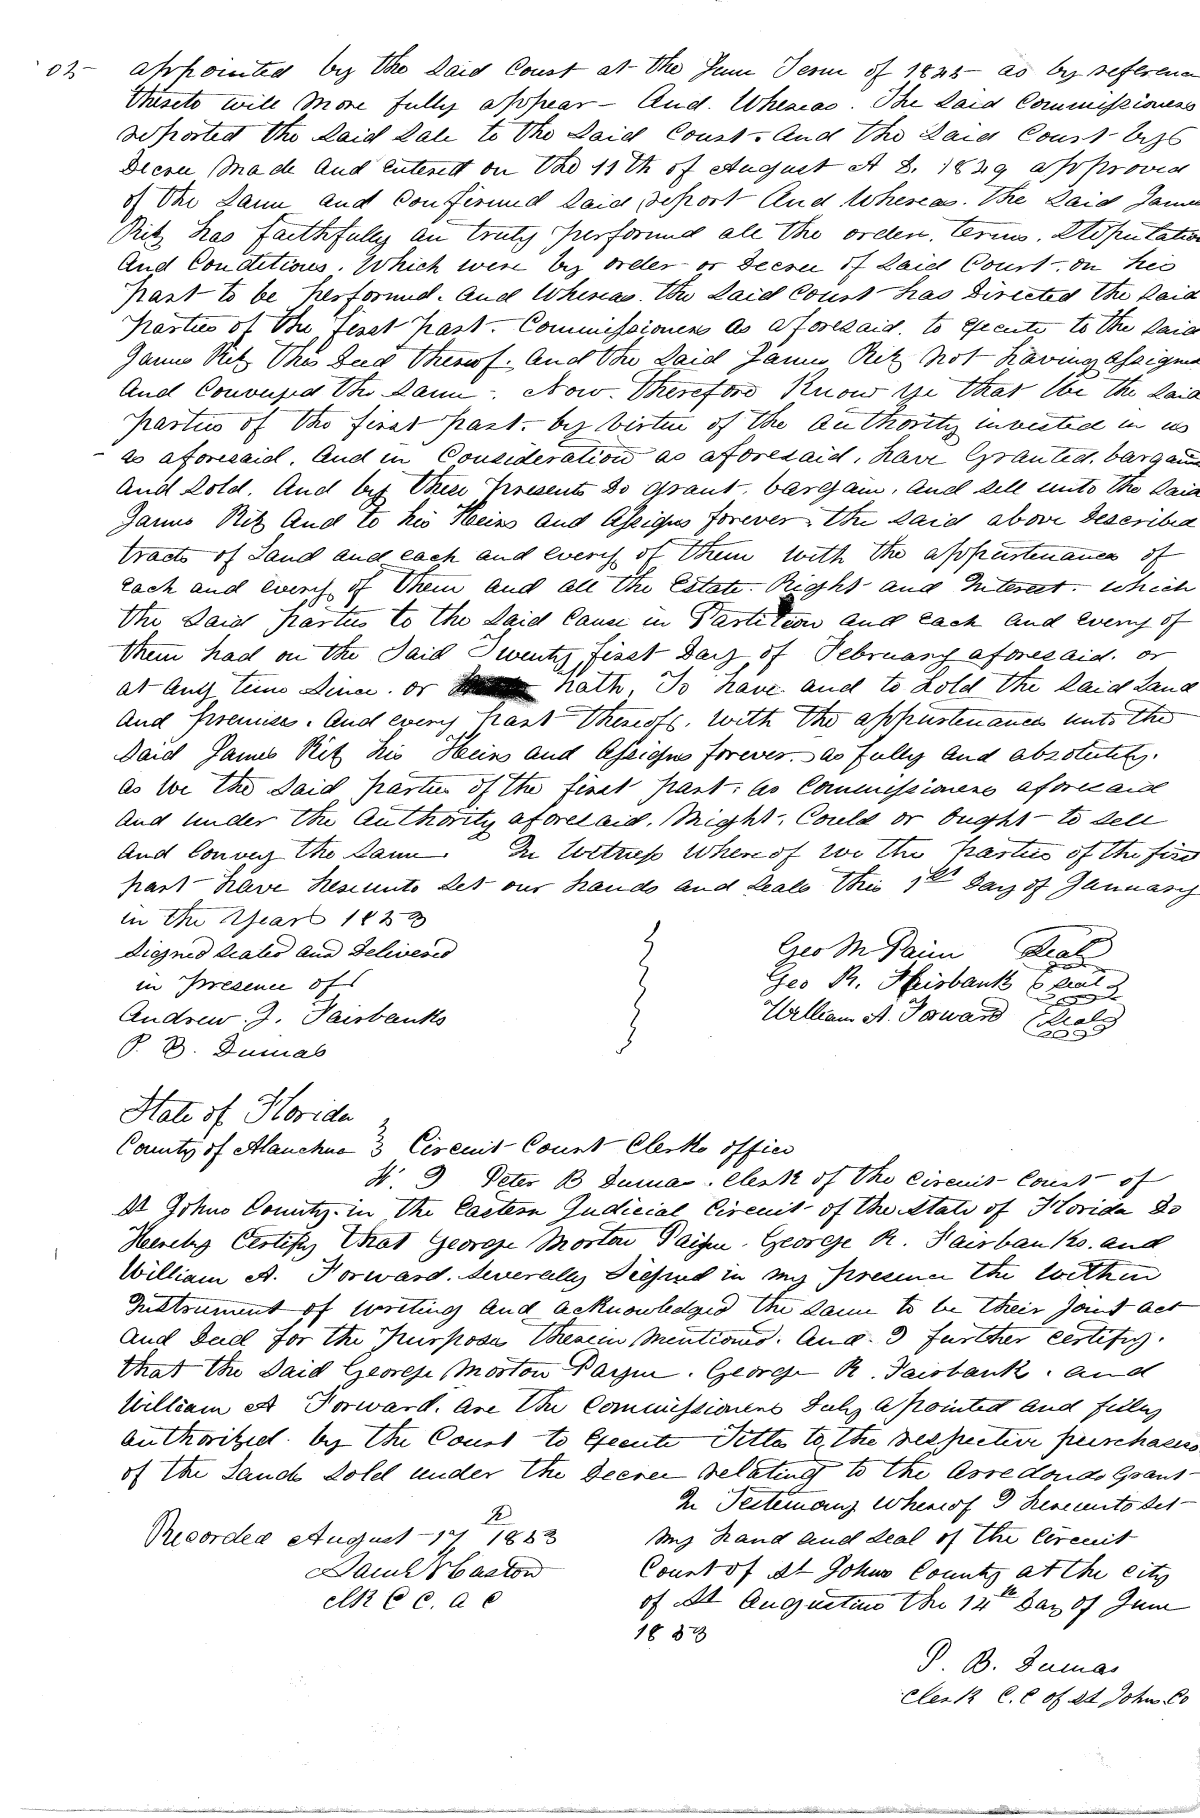 05 appointed by the Said Court at the June Term of 18 as by reference
thereto will more fully appear - And. Whereas. The Said Commissioners
reported the Said Sale to the Said Court. And the Said Court by
Decree Made and entered on the 11th of August A D. 1849 approved
of the Same and Confirmed Said report And Whereas. the Said James
Ritz has faithfully an truly performed all the order. terms. Stipulation
And Conditions. Which were by order or Decree of Said Court. on his
part to be performed. And Whereas. the Said Court has Directed the Said
parties of the first part. Commissioners as aforesaid. to Execute to the Said
James Ritz this Deed thereof. And the Said James Ritz not having assigned
And Conveyed the Same. Now. Therefore Know ye that We the Said
parties of the first part. by Virtue of the Authority invested in us
as aforesaid. And in Consideration as aforesaid, have Granted. bargained
And Sold. And by these presents Do grant. bargain. And Sell unto the Said
James Ritz And to his Heirs and Assigns forever. the Said above Described
tracts of Land and each and every of them with the appurtenances of
each and every of them and all the Estate. Right and Interest. which
the Said parties to the Said Cause in Partition and each and every of
them had on the Said Twenty first Day of February aforesaid. or
at any time Since. or hath, To have and to hold the Said Land
And premises. And every part thereof. With the appurtenances unto the
Said James Ritz his Heirs and Assigns forever. as fully and absolutely.
as We the Said parties of the first part. as Commissioners aforesaid
And under the Authority aforesaid. Might. Could or Ought to Sell
And Convey the Same. In Witness Whereof We the parties of the first
part have hereunto Set our hands and Seals this 1st Day of January
in the Year 1853
Signed Sealed and Delivered
in presence of
Andrew. J. Fairbanks
P. B. Dumas
Geo M Paine Seal
Geo R. Fairbank Seal
William A. Forward Seal
State of Florida
County of Alauchua Circuit Court Clerks office
I Peter B Dumas. Clerk of the Circuit Court of
St Johns County. in the Eastern Judicial Circuit of the State of Florida Do
Hereby Certify that George Morton Payne. George R. Fairbanks. and
William A. Forward. Severally Signed in my presence the Within
Instrument of Writing And acknowledged the Same to be their Joint act
And Deed for the Purposes therein Mentioned. And. I further certify.
that the Said George Morton Payne. George R. Fairbank. and
William A Forward. are the Commissioners Duly apointed and fully
authorized. by the Court to Execute Titles to the respective purchasers
of the Lands Sold under the Decree relating to the Arredondo Grant
In Testimony Whereof I hereunto Set
my hand and Seal of the Circuit
Court of St Johns County at the city
of St Augustine the 14th Day of June
1853
P. B. Dumas
Clerk C. C of St Johns. Co
Recorded August 17 1853
Clk C C. A C